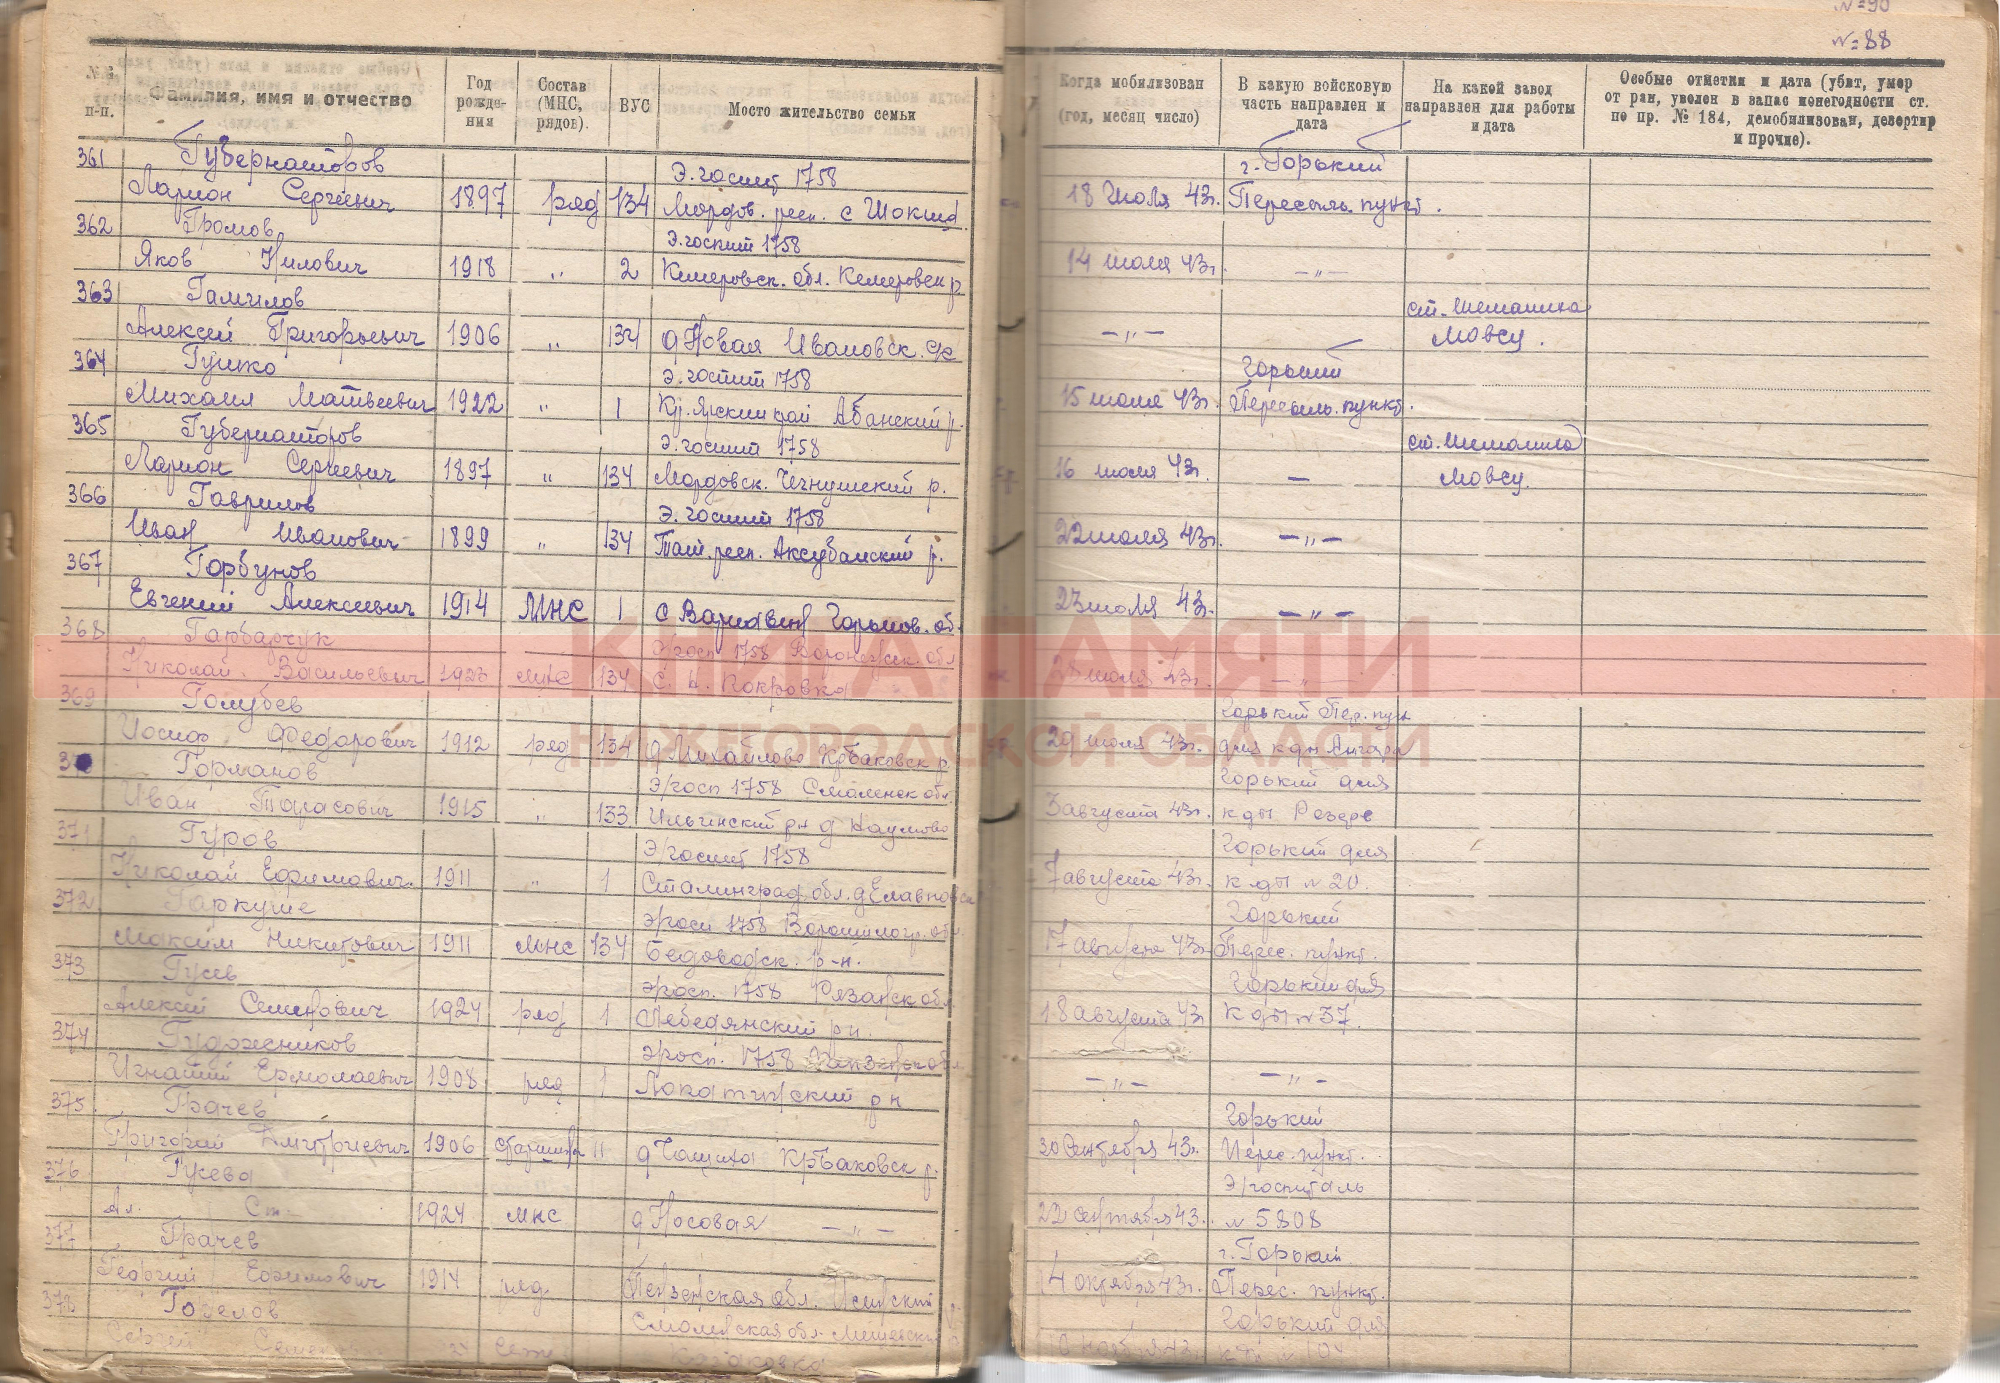 №=90
№=88
№№ п-п. Фамилия, имя и отчество Год рождения Состав (МНС, рядов). ВУС Место жительство семьи Когда мобилизован (год, месяц число) В какую войсковую часть направлен и дата На какой завод направлен для работы и дата Особые отметки и дата (убит, умер от ран, уволен в запас по негодности ст. по пр. № 184, демобилизован, дезертир и прочие).
361 Губернаторов Э.госпит 1758 г. Горький
Ларион Сергеевич 1897 ряд 134 Мордов. респ. с 18 Июля 43г. Пересыль. пункт.
362 Громов Э.госпит 1758
Яков Нилович 1918 „ 2 Кемеровск. обл. Кемеровск р 14 июля 43г. —„—
363 ст. Шеманиха
Алексей Григорьевич 1906 „ 134 д Новая Ивановск. с/с —„— Мовсу.
364 Гушко Э.госпит 1758 Горький
Михаил Матвеевич 1922 „ 1 Кр.ярский край Абанский р. 15 июля 43г. Пересыль. пункт.
365 Губернаторов Э.госпит 1758 ст. Шеманиха
Ларион Сергеевич 1897 „ 134 Мордовск. р. 16 июля 43г. — Мовсу.
366 Гаврилов Э.госпит 1758
Иван Иванович 1899 „ 134 Тат.респ. Аксубаский р. 22 июля 43г. —„—
367 Горбунов
Евгений Алексеевич 1914 МНС 1 с Варнавин Горьков. об. 23 июля 43г. —„—
368 Гамбарчук Э/госп 1758 Воронежск. обл
Николай Васильевич 1923 МНС 134 с. Н. Покровка 28 июля 43г. —„—
369 Голубев Горький Пер. пун
Иосиф Федорович 1912 ряд 134 д Михайлово Кр.баковск р 29 июля 43г. для к-ды
370 Горманов Э/госп 1758 Смоленск обл. Горький для
Иван Тарасович 1915 „ 133 Ильинский рн д Наумово 3 августа 43г. к-ды
371 Гуров Э/госпит 1758 Горький для
Николай Ефимович. 1911 „ 1 Сталинград.обл. 7 августа 43г. к-ды № 20.
372 Гаркуше Э/госп 1758 Ворошиловгр. обл. Горький
Максим Никитович 1911 МНС 134 Беловодск. р-н. 17 августа 43г. Перес. пункт.
373 Гусев Э/госп. 1758 Рязанск обл. Горький для
Алексей Семенович 1924 ряд 1 Лебедянский рн. 18 августа 43г. к-ды № 37.
374 Гудожников Э/госп. 1758 Пензенск обл
Игнатий Ермолаевич 1908 ряд 1 Лопатинский рн —„— —„—
375 Грачев Горький
Григорий Дмитриевич 1906 старшина 11 д Чащиха Кр.Баковск р. 30 Сентября 43г. Перес. пункт.
376 Гусева Э/госпиталь
Ал. Ст. 1924 мнс д Носовая —„— 22 сентября 43. № 5808
377 Грачев г. Горький
Георгий Ефимович 1914 ряд. Пензенская обл. Иссинский р 4 октября 43г. Перес. пункт.
378 Горелов Смоленская обл. Горький для
Сергей 24 Казаковка ноября 43г.
КНИГА ПАМЯТИ
НИЖЕГОРОДСКОЙ ОБЛАСТИ